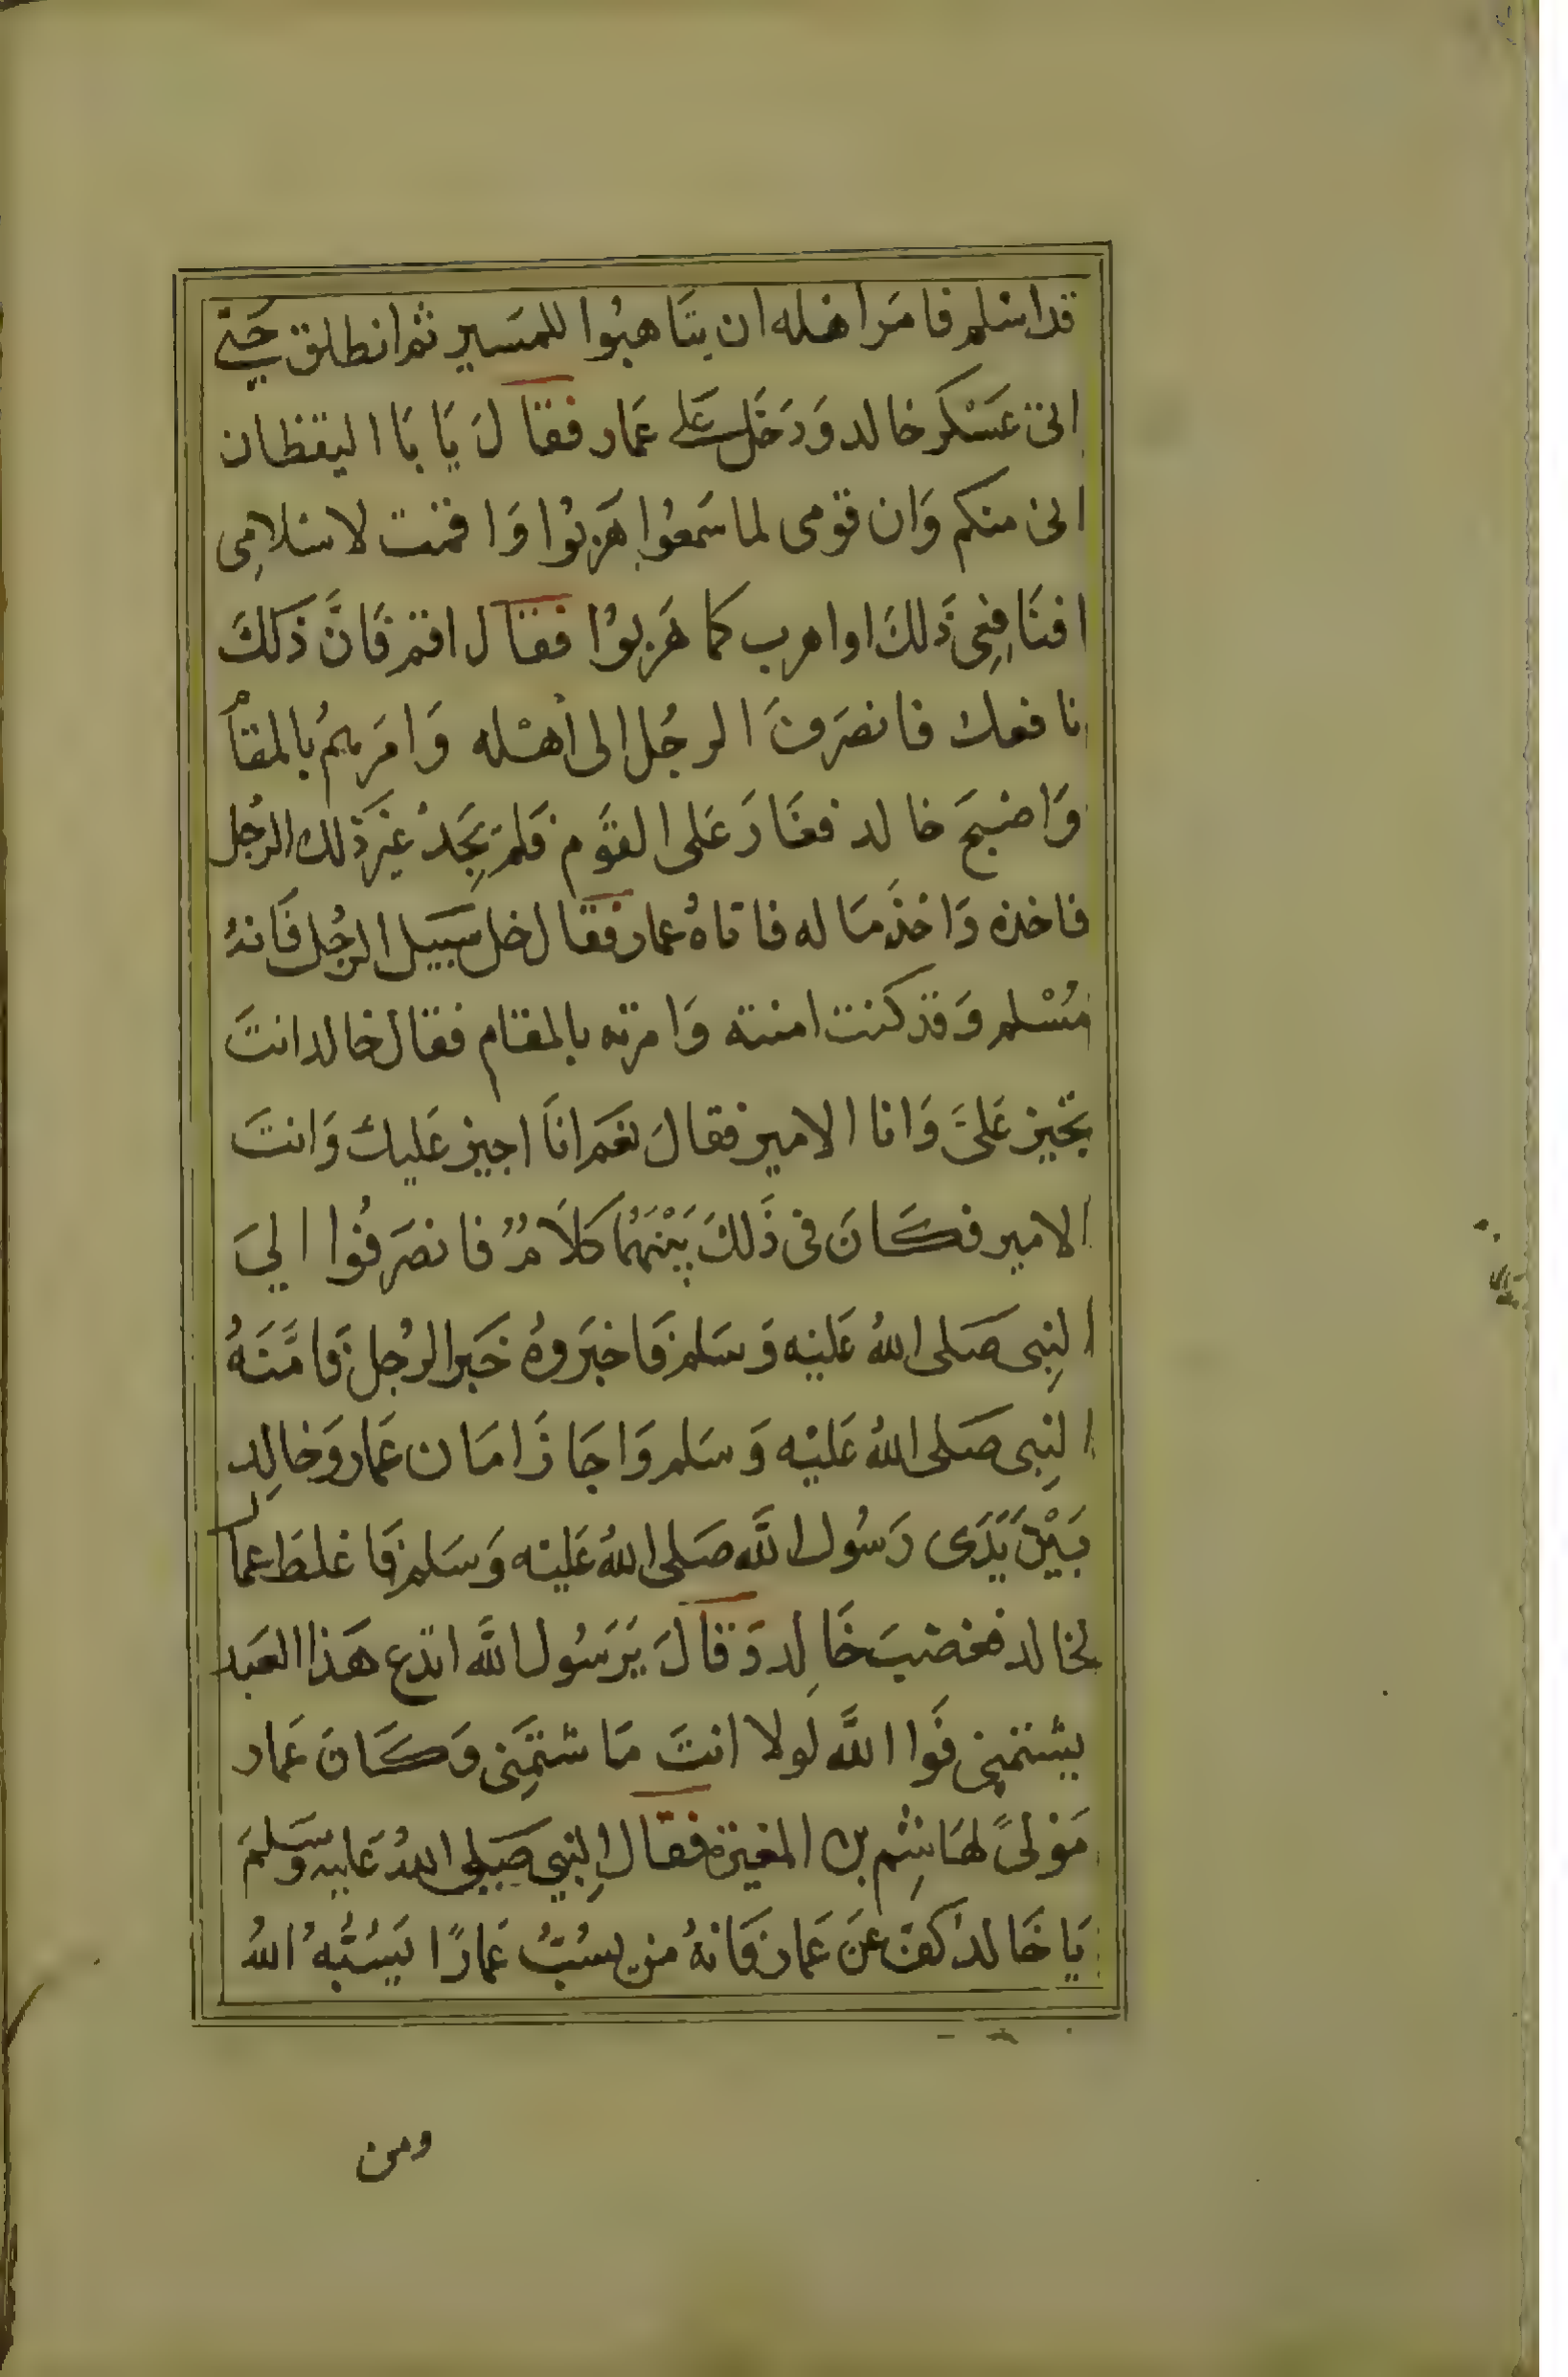 قد اسْلم فامَر اهْله ان يتَاهبُوا للمسَير ثم انطلق حَتى
اتى عَسْكر خالد وَدَخَل عَلى عَمار فقالَ يَا بَا اليقظان
انى منكم وَان قومى لما سَمعُوا هَربُوا وَاقمت لاسْلامِى
افنَافِعِى ذَلكَ او اهرب كما هَربوُا فقال اقم فَانَّ ذَلكَ
نافعك فانصَرفَ الرجُل الى أهْله وَامَرهمُ بالمقاَم
وَاصْبحَ خالد فغَارَ عَلى القوَم فَلم يَجِدْ غيَر ذلك الرجُل
فاخذه وَاخذَ مَاله فاتاهُ عمار فقال خل سَبيل الرجُل فَانهُ
مُسْلم وَقد كنت امنته وَامرته بالمقام فقال خالد انتَ
تجيز عَلىَّ وَانا الامير فقالَ نعَم انَا اجيز عَليك وَانتَ
الامير فكَانَ فى ذَلكَ بَيْنَهُمَا كلاَمٌ فانصَرفُوا الىَ
النِبى صَلى اللهُ عَليْه وَسَلم فَاخبَروهُ خَبر الرجُل فَامَّنَهُ
النِبى صَلى اللهُ عَليْه وَسَلم وَاجَازَ امَان عَمار وَخالِد
بَيْنَ يَدَى رَسُول اللَّه صَلى اللهُ عَليْه وَسَلم فَاغلظ عمار
لخالد فغضبَ خَالِد وَقالَ يَرَسُول اللَّه اتدَع هَذا العَبد
يشتمنِى فَوا اللَّه لولا انتَ مَا شتمَنِى وَكَانَ عَمار
مَوْلىً لهَاشِم بن المغيرة فقال النِبي صَلى اللهُ عَليه وسَلمَ
يَا خَالدُ كفَّ عَنَ عَمار فَانهُ مَن يسُبُّ عَمارًا يَسُبُّهُ اللهُ
ومن